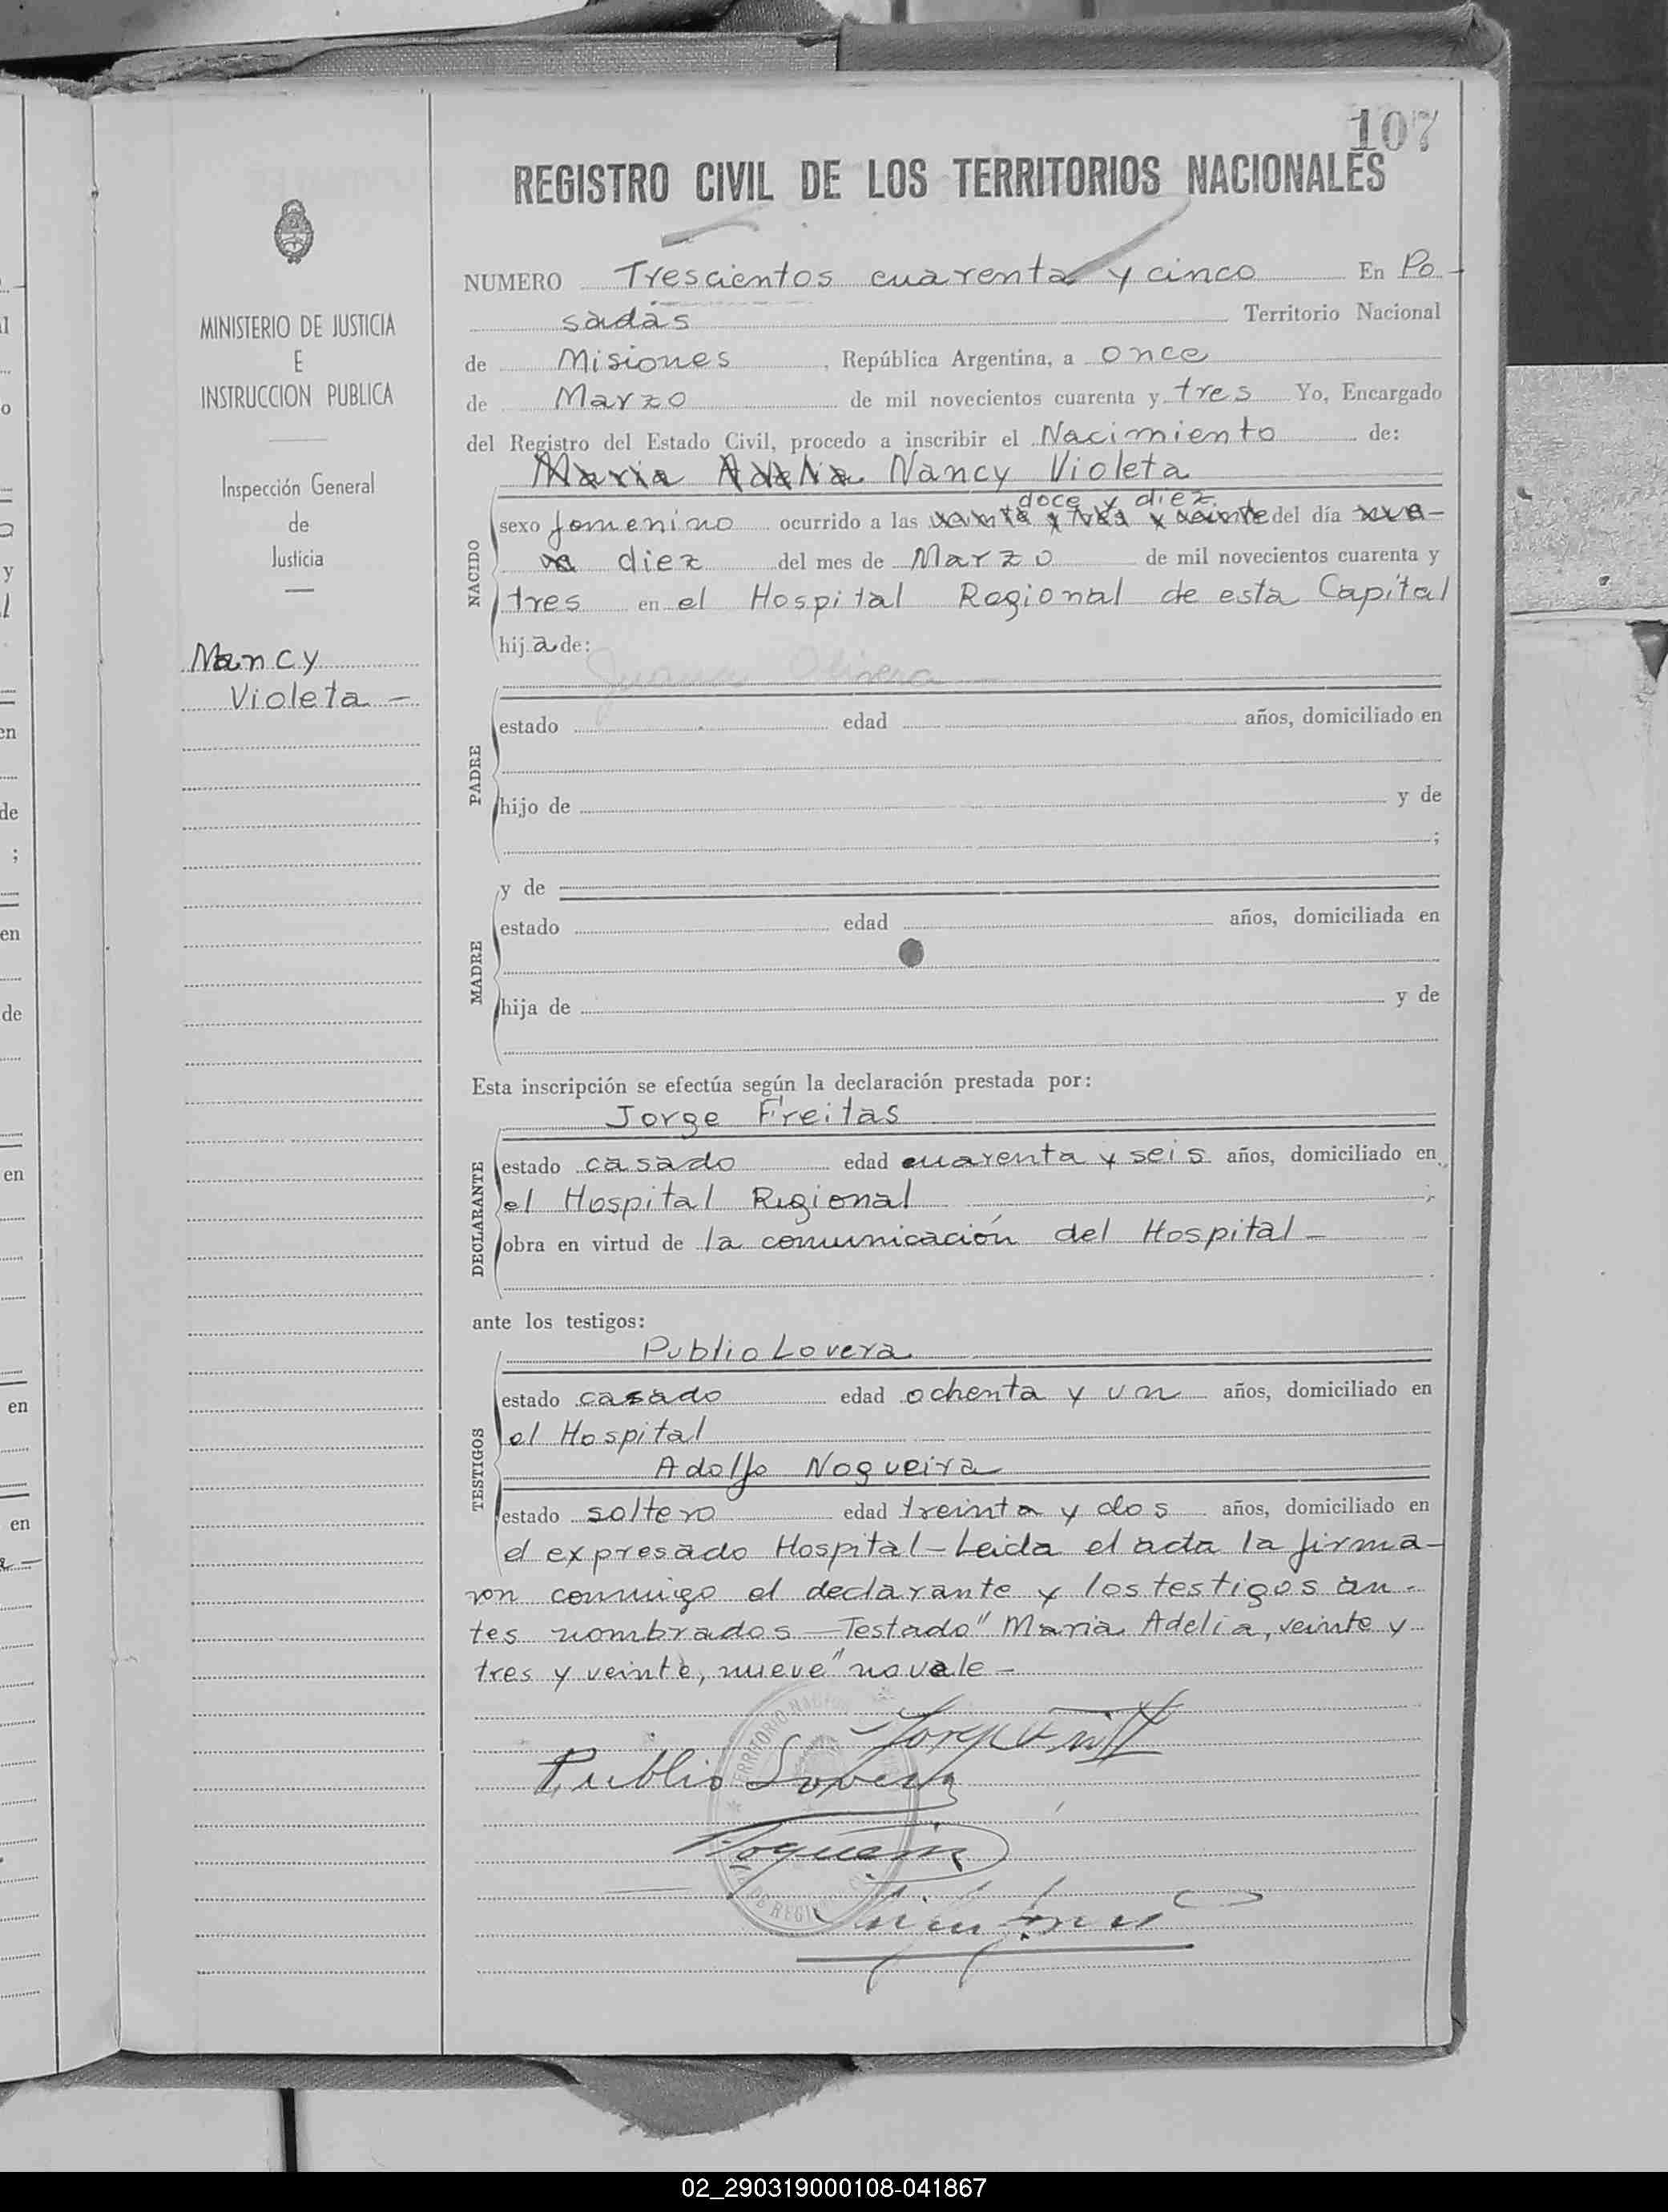 107
REGISTRO CIVIL DE LOS TERRITORIOS NACIONALES
MINISTERIO DE JUSTICIA
E
INSTRUCCION PUBLICA
Inspección General
de
Justicia
Nancy
Violeta -
NUMERO Trescientos cuarenta y cinco En Po-
sadas Territorio Nacional
de Misiones, República Argentina, a once
de Marzo de mil novecientos cuarenta y tres Yo, Encargado
del Registro del Estado Civil, procedo a inscribir el Nacimiento de:
Maria Adelia Nancy Violeta
doce y diez
NACIDO
sexo femenino ocurrido a las veinte y tres y veinte del día nue-
ve diez del mes de Marzo de mil novecientos cuarenta y
tres en el Hospital Regional de esta Capital
hija de:
Olivera
PADRE
estado edad años, domiciliado en
hijo de y de
;
MADRE
y de
estado edad años, domiciliada en
hija de y de
Esta inscripción se efectúa según la declaración prestada por:
Jorge Freitas
DECLARANTE
estado casado edad cuarenta y seis años, domiciliado en
el Hospital Regional ;
obra en virtud de la comunicación del Hospital -
ante los testigos:
Publio Lovera
TESTIGOS
estado casado edad ochenta y un años, domiciliado en
el Hospital
Adolfo Nogueira
estado soltero edad treinta y dos años, domiciliado en
el expresado Hospital - Leida el acta la firma-
ron conmigo el declarante y los testigos an-
tes nombrados - Testado "Maria Adelia, veinte y
tres y veinte, nueve" no vale -
Publio Lovera
Nogueira
02_290319000108-041867